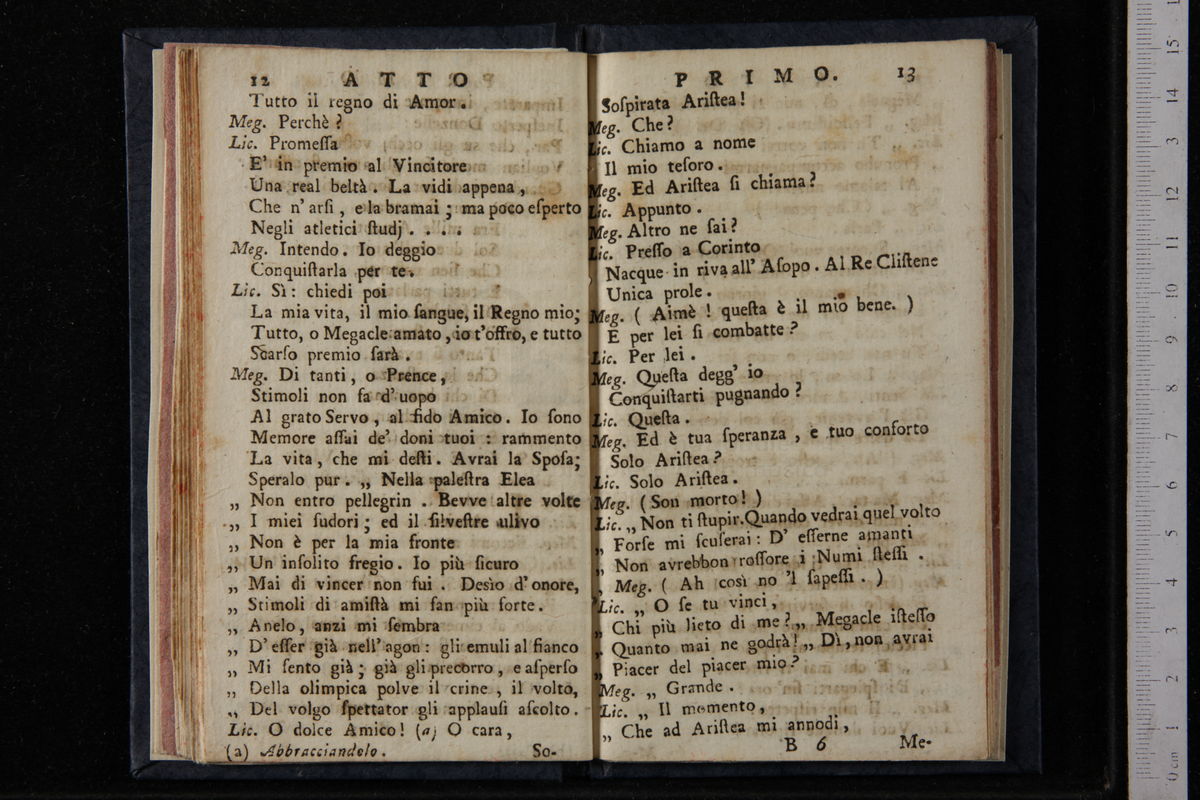 12 ATTO
Tutto il regno di Amor.
Meg. Perchè?
Lic. Promeſſa
E' in premio al Vincitore
Una real beltà. La vidi appena,
Che n' arſi, e la bramai; ma poco eſperto
Negli atletici ſtudj . . . .
Meg. Intendo. Io deggio
Conquiſtarla per te.
Lic. Sì: chiedi poi
La mia vita, il mio ſangue, il Regno mio;
Tutto, o Megacle amato, io t'offro, e tutto
Scarſo premio ſarà.
Meg. Di tanti, o Prence,
Stimoli non fa d'uopo
Al grato Servo, al fido Amico. Io ſono
Memore aſſai de' doni tuoi : rammento
La vita, che mi deſti. Avrai la Spoſa;
Speralo pur. „ Nella paleſtra Elea
„ Non entro pellegrin. Bevve altre volte
„ I miei ſudori; ed il ſilveſtre ulivo
„ Non è per la mia fronte
„ Un inſolito fregio. Io più ſicuro
„ Mai di vincer non fui. Desìo d'onore,
„ Stimoli di amiſtà mi fan più forte.
„ Anelo, anzi mi ſembra
„ D'eſſer già nell'agon: gli emuli al fianco
„ Mi ſento già; già gli precorro, e aſperſo
„ Della olimpica polve il crine, il volto,
„ Del volgo ſpettator gli applauſi aſcolto.
Lic. O dolce Amico! (a) O cara,
(a) Abbracciandolo. So-
PRIMO. 13
Soſpirata Ariſtea!
Meg. Che?
Lic. Chiamo a nome
Il mio teſoro.
Meg. Ed Ariſtea ſi chiama?
Lic. Appunto.
Meg. Altro ne ſai?
Lic. Preſſo a Corinto
Nacque in riva all' Aſopo. Al Re Cliſtene
Unica prole.
Meg. ( Aimè! queſta è il mio bene. )
E per lei ſi combatte?
Lic. Per lei.
Meg. Queſta degg' io
Conquiſtarti pugnando?
Lic. Queſta.
Meg. Ed è tua ſperanza, e tuo conforto
Solo Ariſtea?
Lic. Solo Ariſtea.
Meg. (Son morto! )
Lic. „ Non ti ſtupir. Quando vedrai quel volto
„ Forſe mi ſcuſerai: D' eſſerne amanti
„ Non avrebbon roſſore i Numi ſteſſi.
, Meg. ( Ah così no 'l ſapeſſi. )
Lic. „ O ſe tu vinci,
„ Chi più lieto di me? „ Megacle iſteſſo
„ Quanto mai ne godrà! „ Dì, non avrai
„ Piacer del piacer mio?
Meg. „ Grande.
Lic. „ Il momento,
„ Che ad Ariſtea mi annodi,
B 6 Me-
0 cm 1 2 3 4 5 6 7 8 9 10 11 12 3 14 15